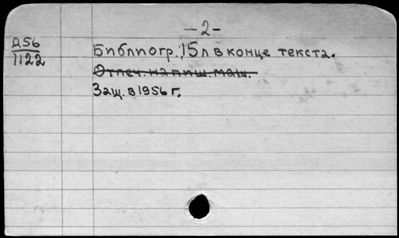 — 2 —
Д56
1122
Библиогр.: 15 л в конце текста.
Отпеч. на пиш. маш.
Защ. в 1956 г.